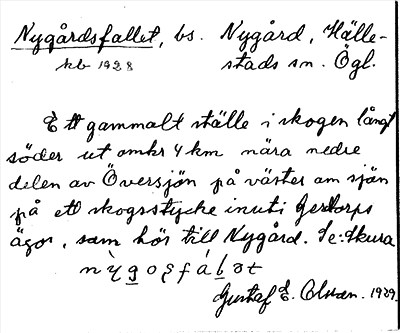 Nygårdsfallet, bs. Nygård, Hälle-
kb 1928 stads sn. Ögl.
Ett gammalt ställe i skogen långt
söder ut omkr 4 km nära nedre
delen av Översjön på väster om sjön
på ett skogsstycke inuti Gerstorps
ägor, som hör till Nygård. Se: Skura
Gustaf E. 1929.